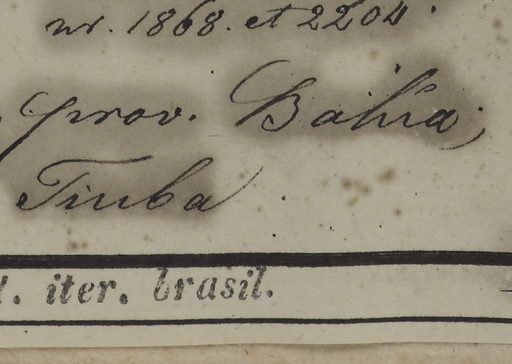 nr. 1868. et 2204.
prov. Bahia,
Tiuba.
iter. brasil.